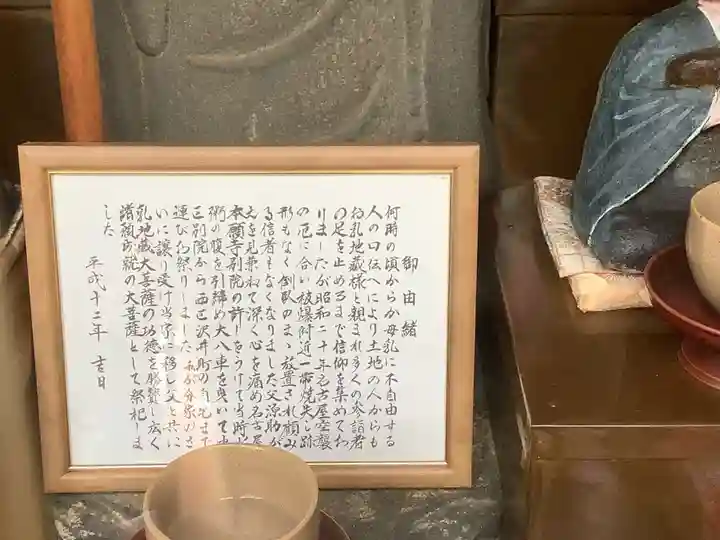 御由緒
何時の頃からか母乳に不自由せる
人の口伝へにより土地の人からも
お乳地蔵様と親まれ多くの参詣者
の足を止めるまで信仰を集めてお
りましたが昭和二十年名古屋空襲
の厄に合い被爆附近一帯焼失し跡
形もなく倒臥のまゝ放置され顧み
る信者もなくなりました父源助が
之を見兼ねて深く心を痛め名古屋
本願寺別院の許しをうけて当時
粥の腹を引締め大八車を曳いて
区別院から西区沢井町の自宅まで
運びお祭りしました
いに譲り受け当家に移し父と共に
乳地蔵大菩薩の功徳を勝賛し広く
諸願成就の大菩薩として祭祀しま
した
平成十二年 吉日